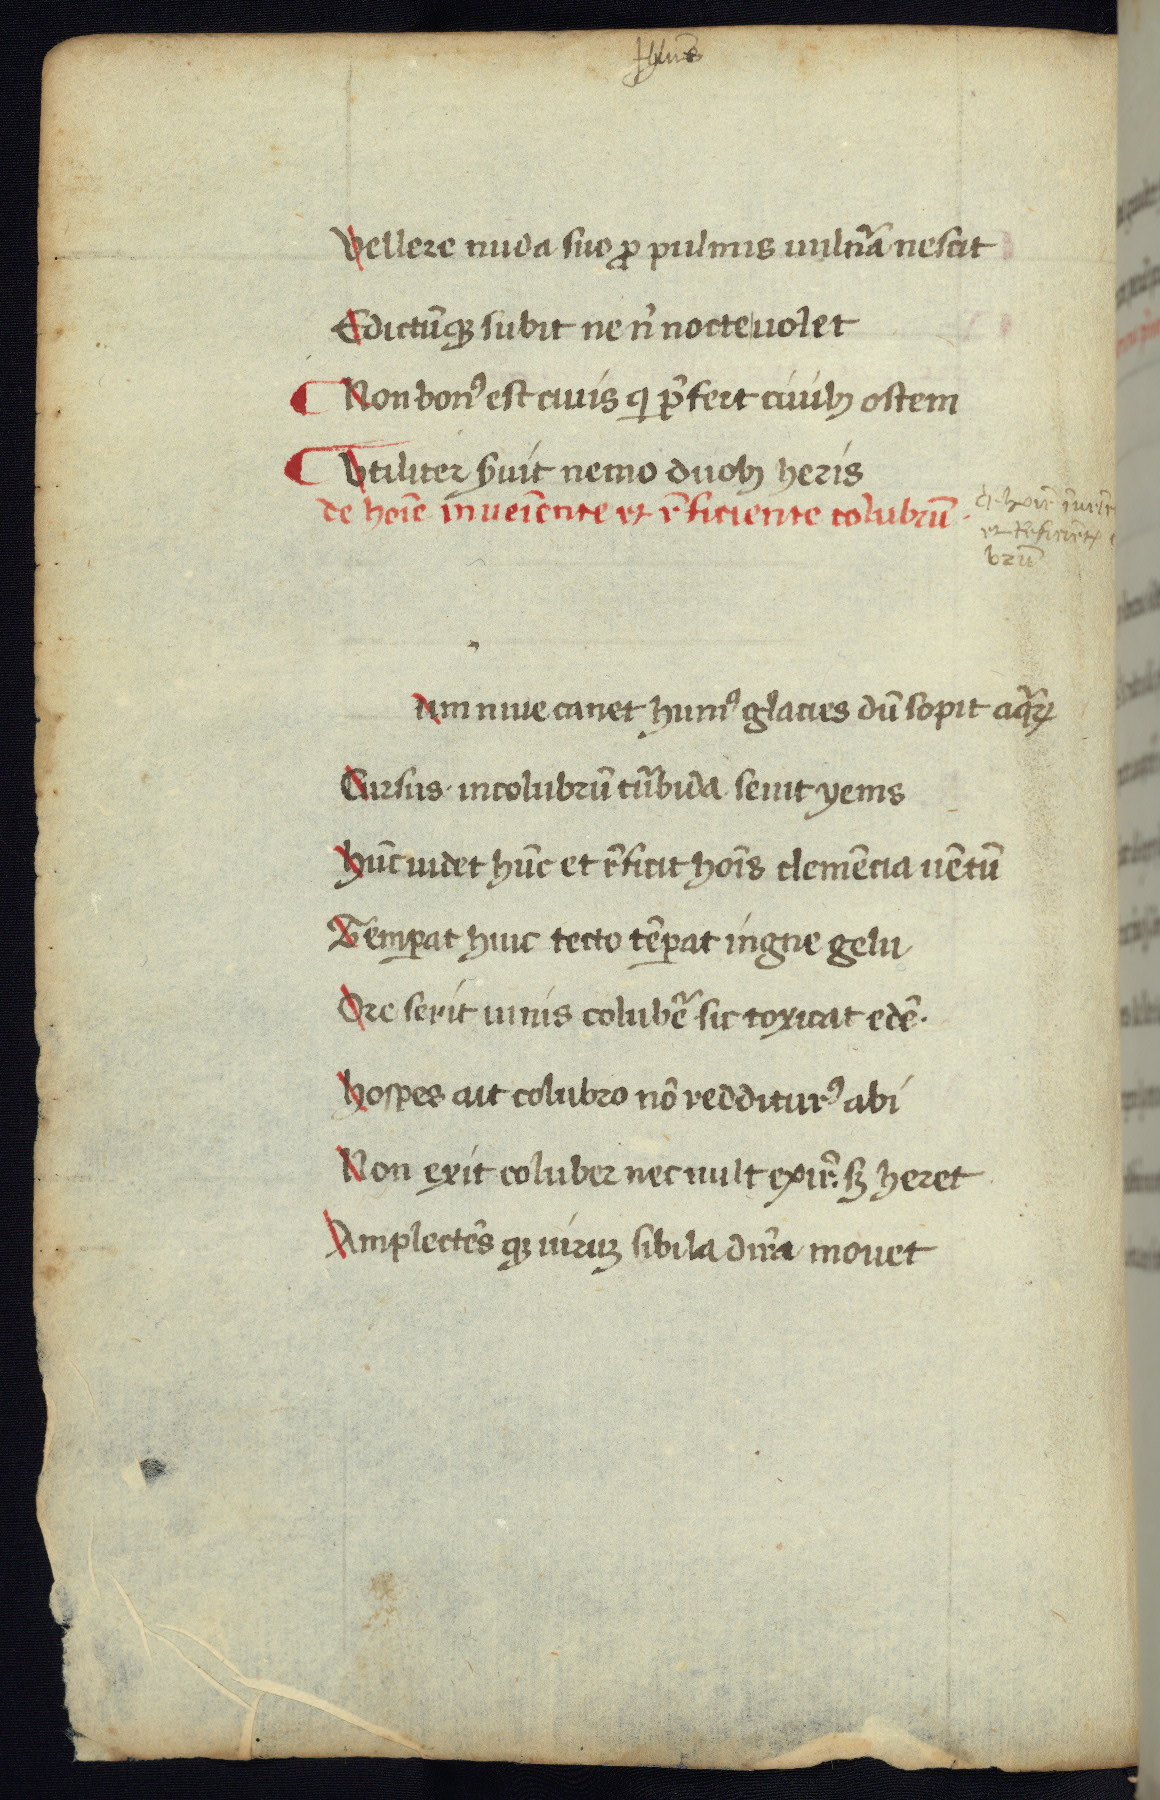 Vellere nuda suo ꝓ pulmis uulnʾa nescit
Edictūqꝫ subit ne ñ nocte uolet
¶ Non bonꝰ est ciuis qi p̄fert ciuibꝫ ostem
¶ Vtiliter s̄uit nemo duobꝫ heris
de hoīe inueiēnte et r̄ficiente colubrū
de hoīe
et reficiēte
brū
um niue canet humꝰ glacies dū sopit aq̄ꝝ
Cursus· in colubrū tūbida seuit yems
hūc uidet hūc et r̄ficit hoīs clemēcia uētū
Tēmꝑat huic tecto tēꝑat ingne gelu
Ore serit uirus colubē sic toxicat edē·
hospes ait colubro nō redditurꝰ abi
Non exit coluber nec uult expir̄: sꝫ heret
Amplectēs qꝫ uiruꝫ sibila dira mouet